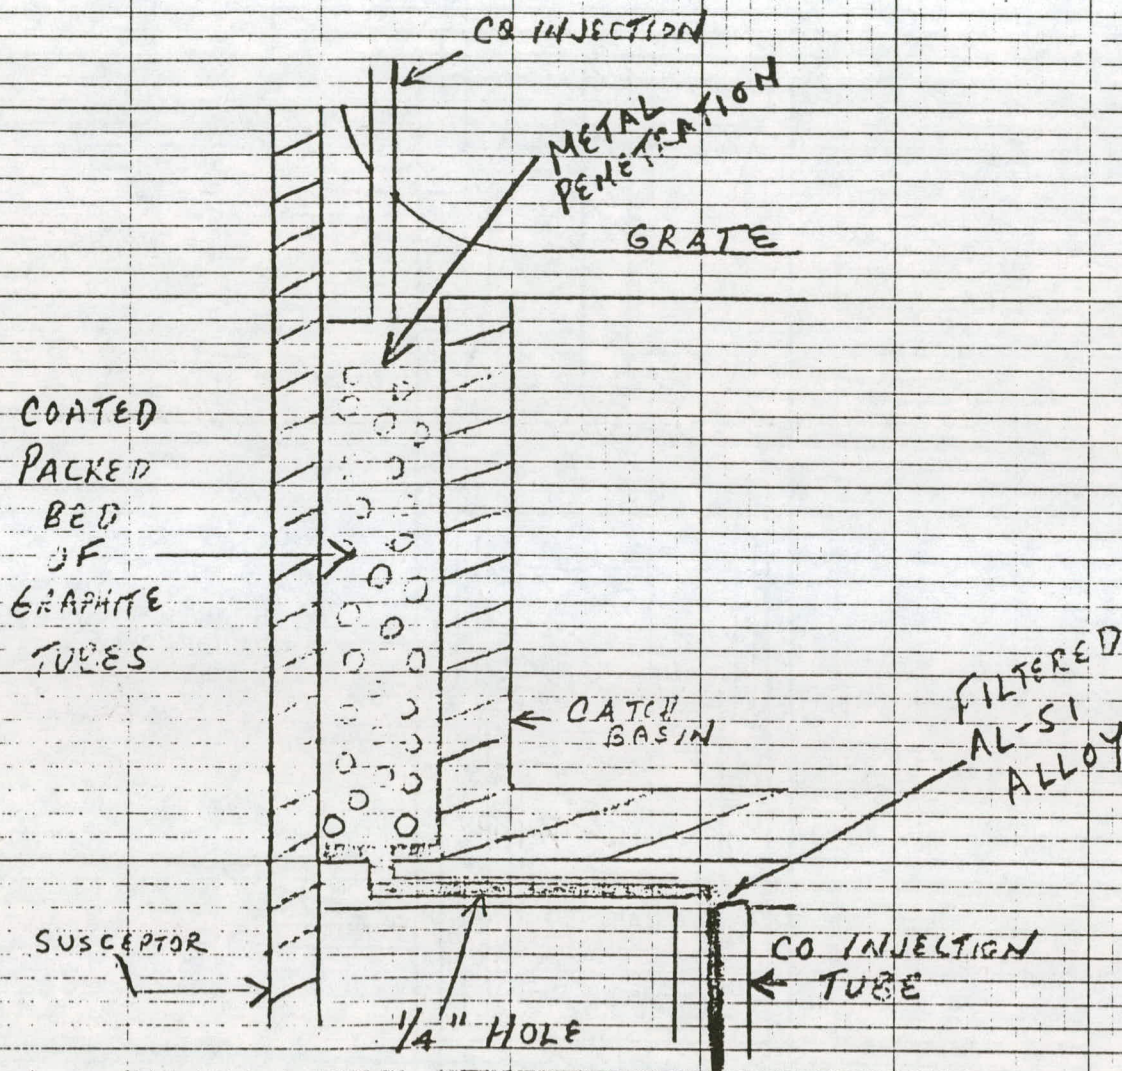 CO INJECTION
METAL
PENETRATION
GRATE
COATED
PACKED
BED
OF
GRAPHITE
TUBES
CATCH
BASIN
FILTERED
AL-SI
ALLOY
SUSCEPTOR
CO INJECTION
TUBE
1/4" HOLE